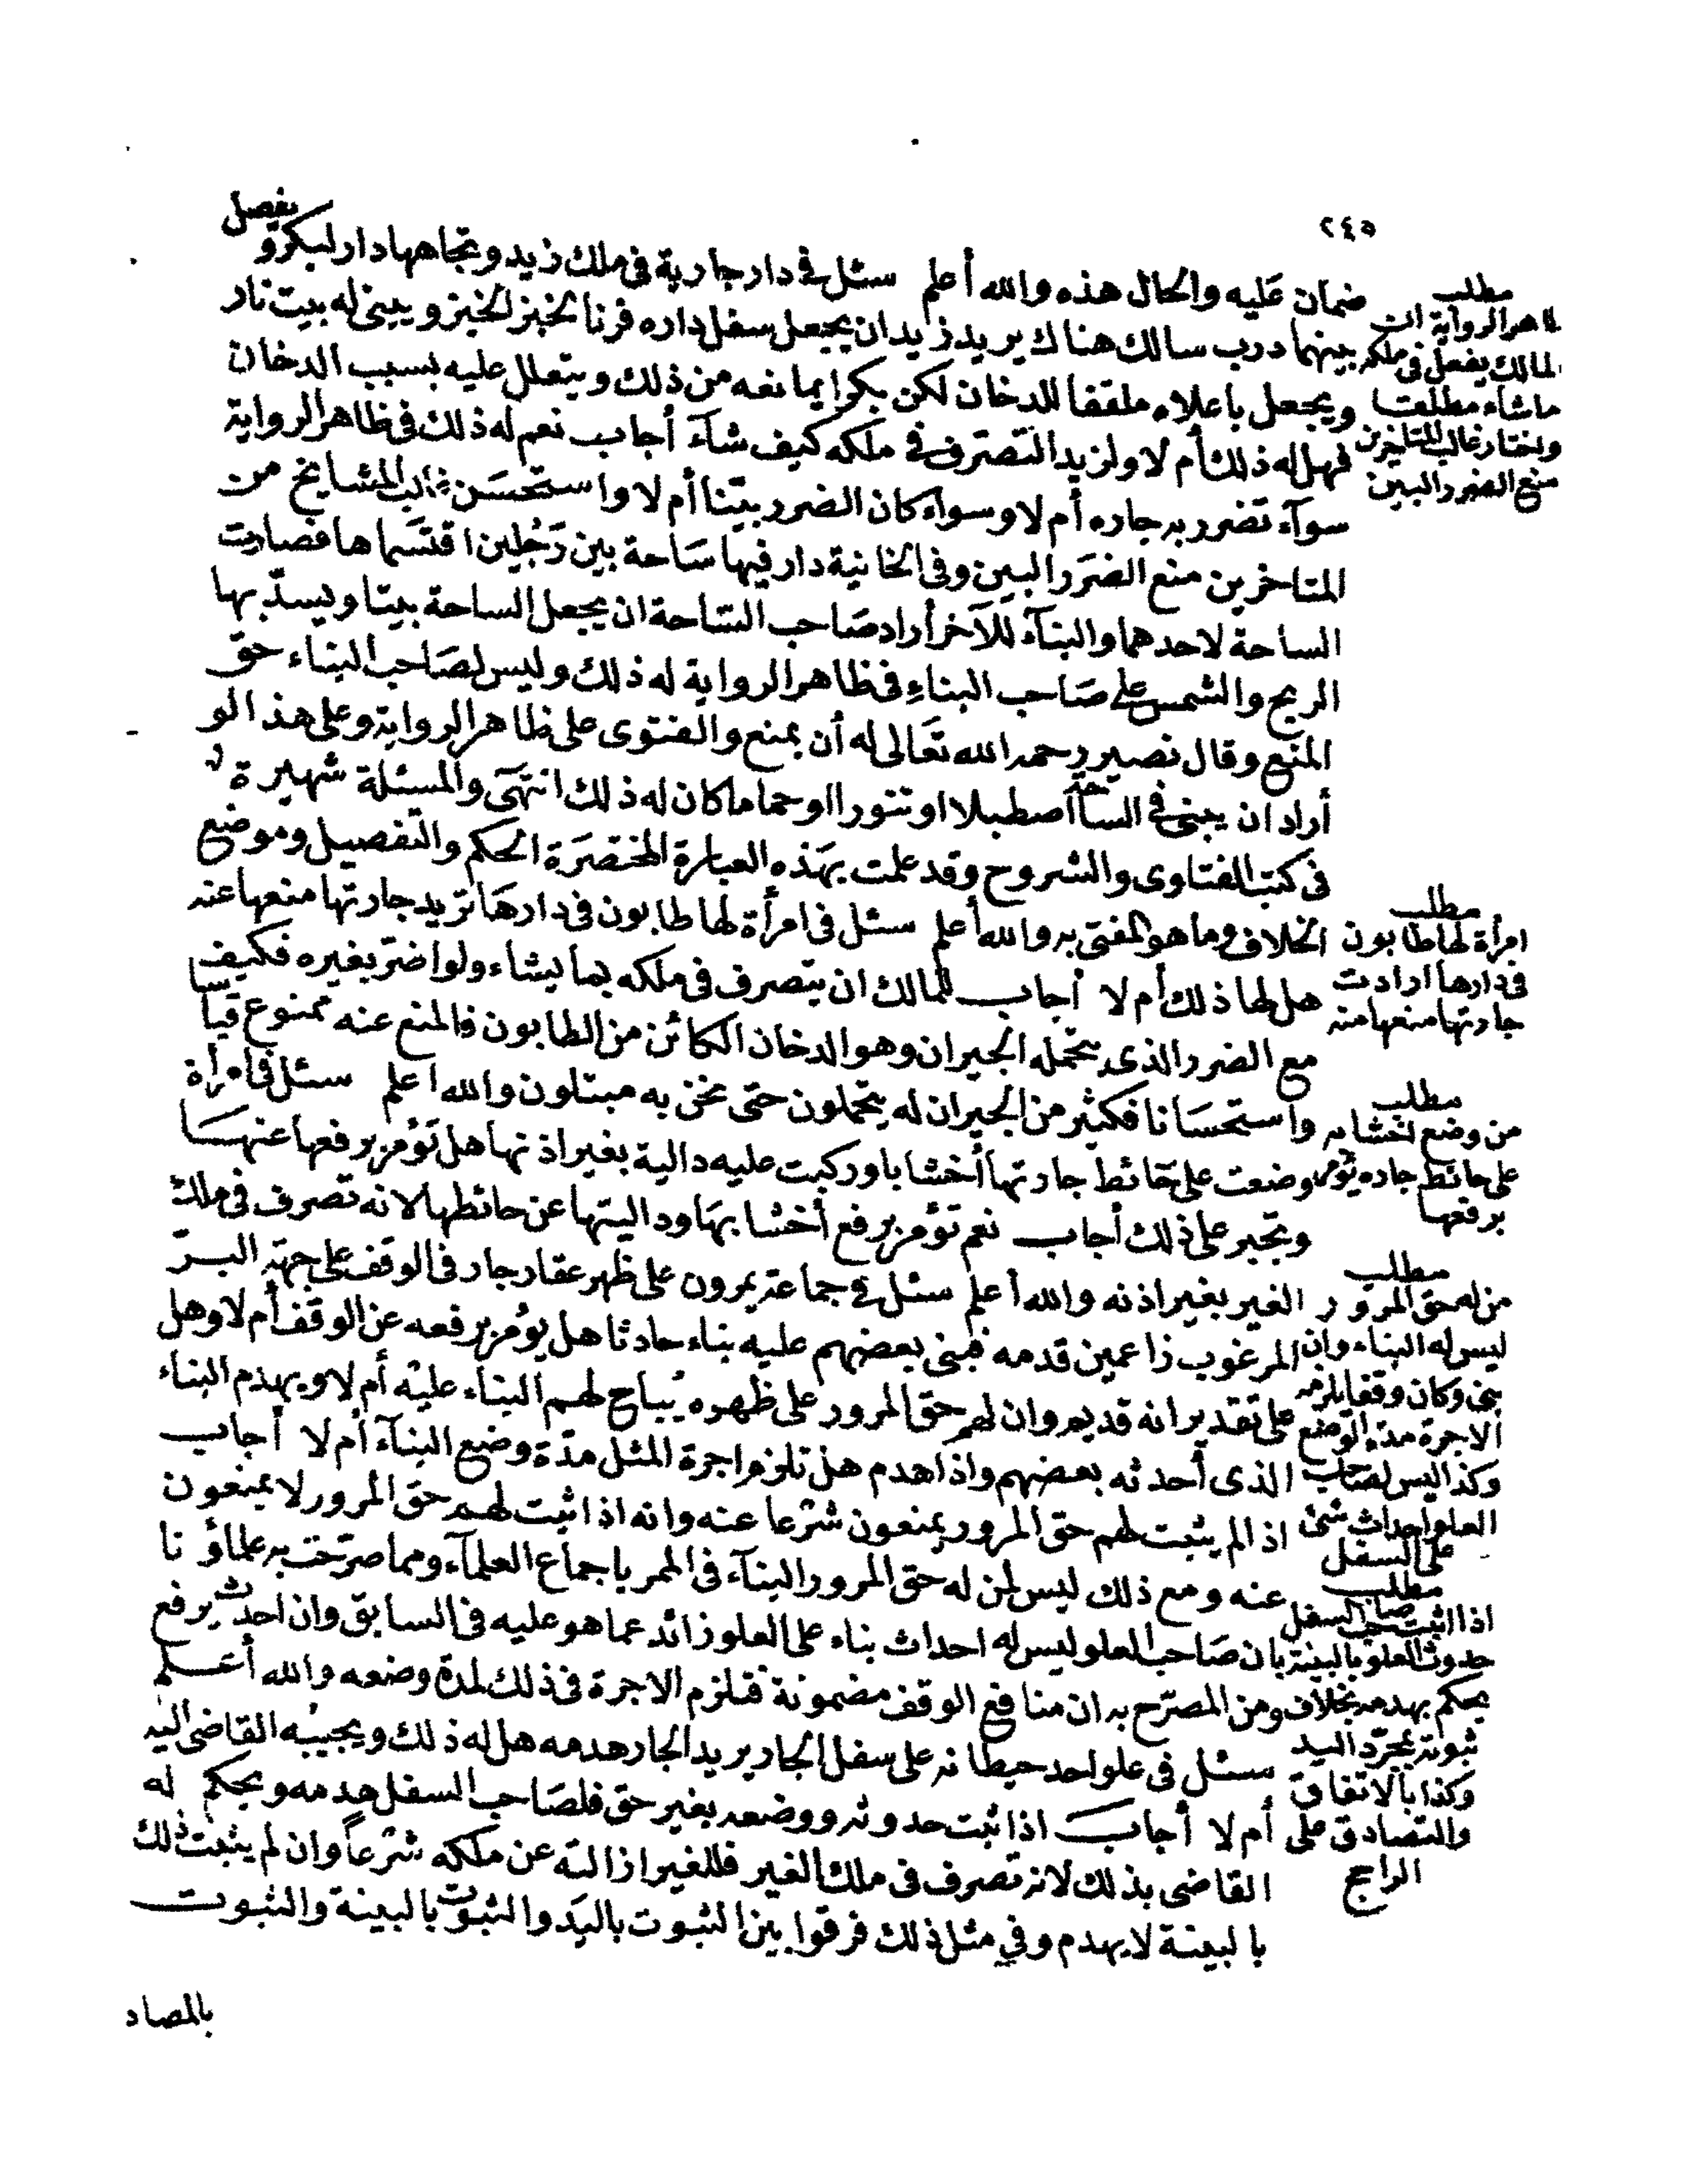 ٢٤٥
ضمان عليه والحال هذه والله أعلم سئل في دار جارية في ملك زيد وتجاهها دار لبكر ويفصل
بينهما درب سالك هناك يريد زيد ان يجعل سفل داره فرنا لخبز الخبز ويبنى له بيت نار
ويجعل باعلاه ملقفا للدخان لكن بكرا يمانعه من ذلك ويتعلل عليه بسبب الدخان
فهل له ذلك أم لا ولزيد التصرف في ملكه كيف شآء أجاب نعم له ذلك في ظاهر الرواية
سوآء تضرر به جاره أم لا وسواء كان الضرر بيّنا أم لا واستحسن غالب المشايخ من
المتاخرين منع الضرر البين وفي الخانية دار فيها ساحة بين رجلين اقتسماها فصارت
الساحة لاحدهما والبنآء للآخر أراد صاحب الساحة ان يجعل الساحة بيتا ويسدّ بها
الريح والشمس على صاحب البناء في ظاهر الرواية له ذلك وليس لصاحب البناء حق
المنع وقال نصير رحمه الله تعالى له أن يمنع والفتوى على ظاهر الرواية وعلى هذا لو
أراد ان يبنى في الساحة اصطبلا او تنورا او حماما كان له ذلك انتهى والمسئلة شهيرة
في كتب الفتاوى والشروح وقد علمت بهذه العبارة المختصرة الحكم والتفصيل وموضع
الخلاف وما هو المفتى به والله أعلم سئل في امرأة لها طابون في دارها تريد جارتها منعها عنه
هل لها ذلك أم لا أجاب للمالك ان يتصرف في ملكه بما يشاء ولو اضر بغيره فكيف
مع الضرر الذى يتحمله الجيران وهو الدخان الكائن من الطابون فالمنع عنه ممنوع قياسا
واستحسانا فكثير من الجيران له يتحملون حتى نحن به مبتلون والله اعلم سئل في امرأة
وضعت على حائط جارتها أخشابا وركبت عليه دالية بغير اذنها هل تؤمر برفعها عنها
وتجبر على ذلك أجاب نعم تؤمر برفع أخشابها وداليتها عن حائطها لانه تصرف في ملك
الغير بغير اذنه والله أعلم سئل في جماعة يمرون على ظهر عقار جار في الوقف على جهة البرّ
المرغوب زاعمين قدمه فبنى بعضهم عليه بناء حادثا هل يؤمر برفعه عن الوقف أم لا وهل
على تقدير انه قديم وان لهم حق المرور على ظهره يباح لهم البناء عليه أم لا ويهدم البناء
الذى أحدثه بعضهم واذا هدم هل تلزم اجرة المثل مدّة وضع البنآء أم لا أجاب
اذا لم يثبت لهم حق المرور يمنعون شرعا عنه وانه اذا ثبت لهم حق المرور لا يمنعون
عنه ومع ذلك ليس لمن له حق المرور البنآء في الممر باجماع العلمآء ومما صرّحت به علماؤنا
بان صاحب العلو ليس له احداث بناء على العلو زائد عما هو عليه في السابق وان احدث يرفع
ومن المصرّح به ان منافع الوقف مضمونة فتلزم الاجرة في ذلك لمدة وضعه والله أعلم
سئل في علو احد حيطانه على سفل الجار يريد الجار هدمه هل له ذلك ويجيبه القاضى اليه
أم لا أجاب اذا ثبت حدوثه ووضعه بغير حق فلصاحب السفل هدمه ويحكم له
القاضى بذلك لانه تصرف في ملك الغير فللغير ازالته عن ملكه شرعا وان لم يثبت ذلك
بالبينة لا يهدم وفي مثل ذلك فرقوا بين الثبوت باليد والثبوت بالبينة والثبوت
بالمصاد
مطلب
ظاهر الرواية ان
المالك يفعل في ملكه
ماشاء مطلقا
ومختار غالب المتاخرين
منع الضرر البين
مطلب
امرأة لها طابون
في دارها ارادت
جارتها منعها منه
مطلب
من وضع اخشابه
على حائط جاره يؤمر
برفعها
مطلب
من له حق المرور
ليس له البناء وان
بنى وكان وقفا يلزمه
الاجرة مدة الوضع
وكذا ليس لصاحب
العلو احداث شئ
على السفل
مطلب
اذا اثبت صاحب السفل
حدوث العلو بالبينة
يحكم بهدمه بخلاف
ثبوته بمجرّد اليد
وكذا بالاتفاق
والتصادق على
الراجح